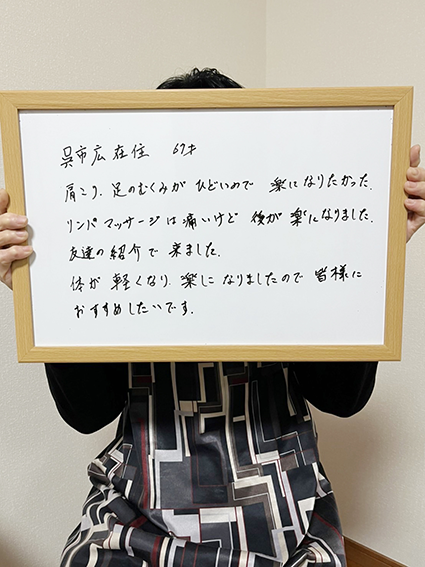 呉市広在住 67才
肩こり、足のむくみが ひどいので 楽に なりたかった。
リンパ マッサージは 痛いけど 後が 楽になりました。
友達の 紹介で 来ました。
体が 軽くなり、楽に なりましたので 皆様に
おすすめしたいです。